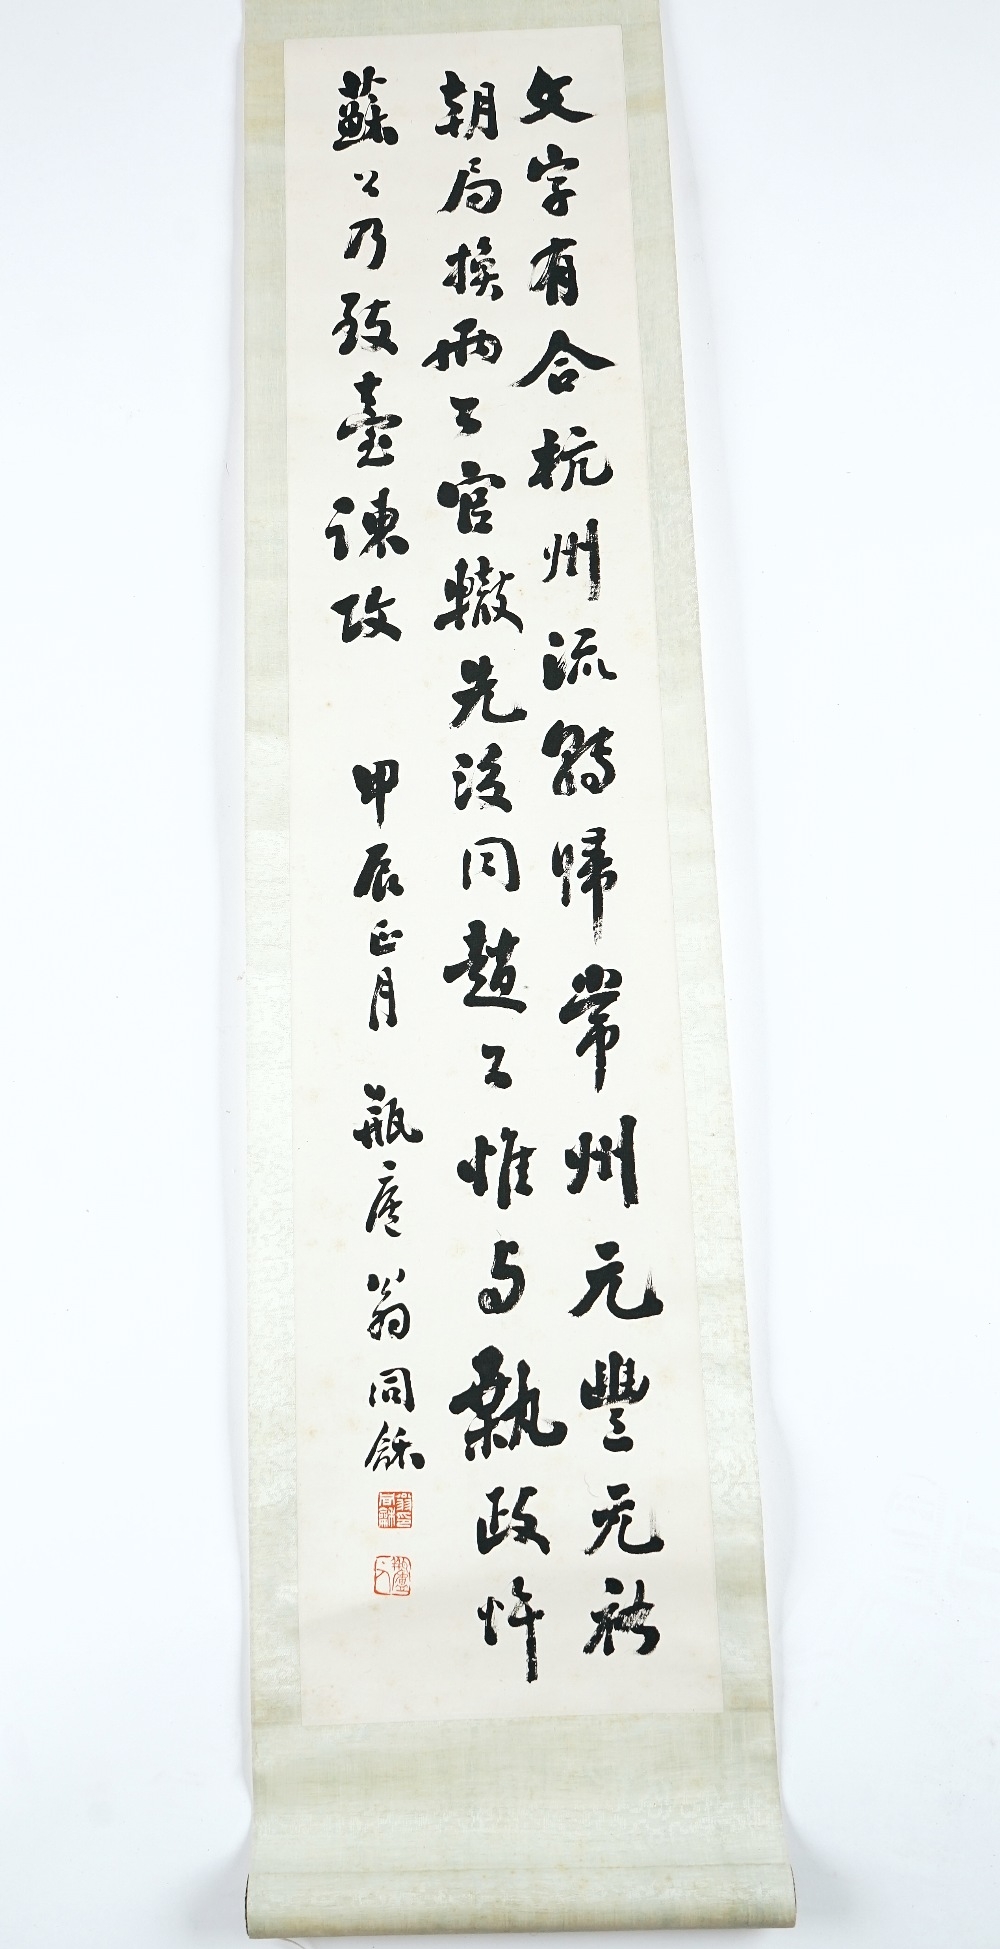 文字有合杭州流轉歸常州元豐元祐
朝局換兩公官轍先後同趙公惟与執政忤
蘇公乃致臺諫攻
甲辰正月
瓶廬翁同龢